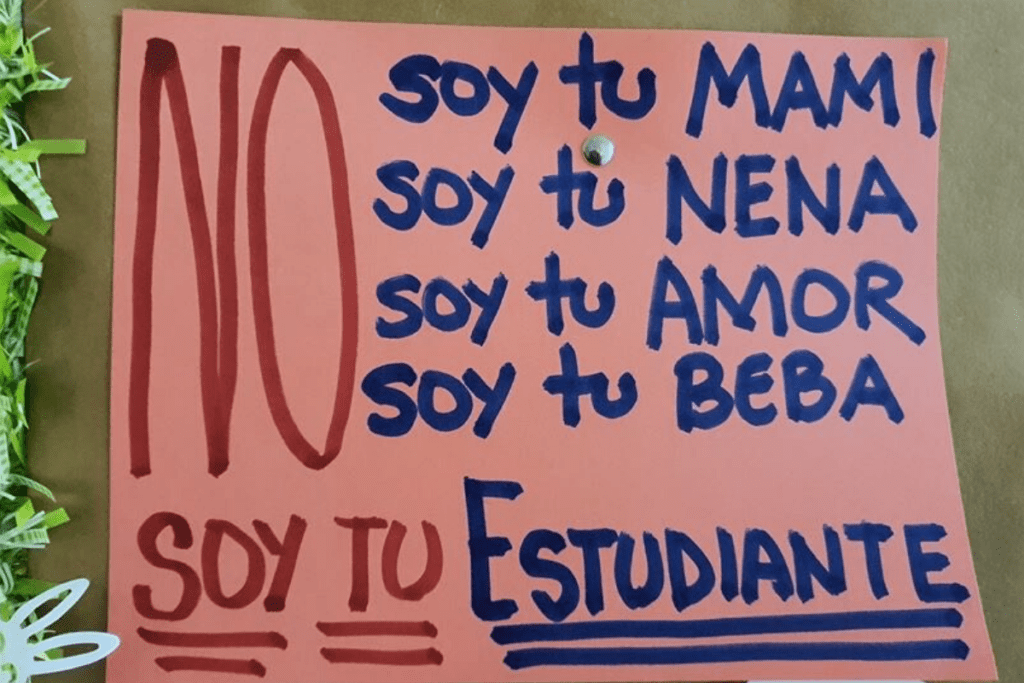 NO soy tu MAMI
soy tu NENA
soy tu AMOR
soy tu BEBA
SOY TU ESTUDIANTE